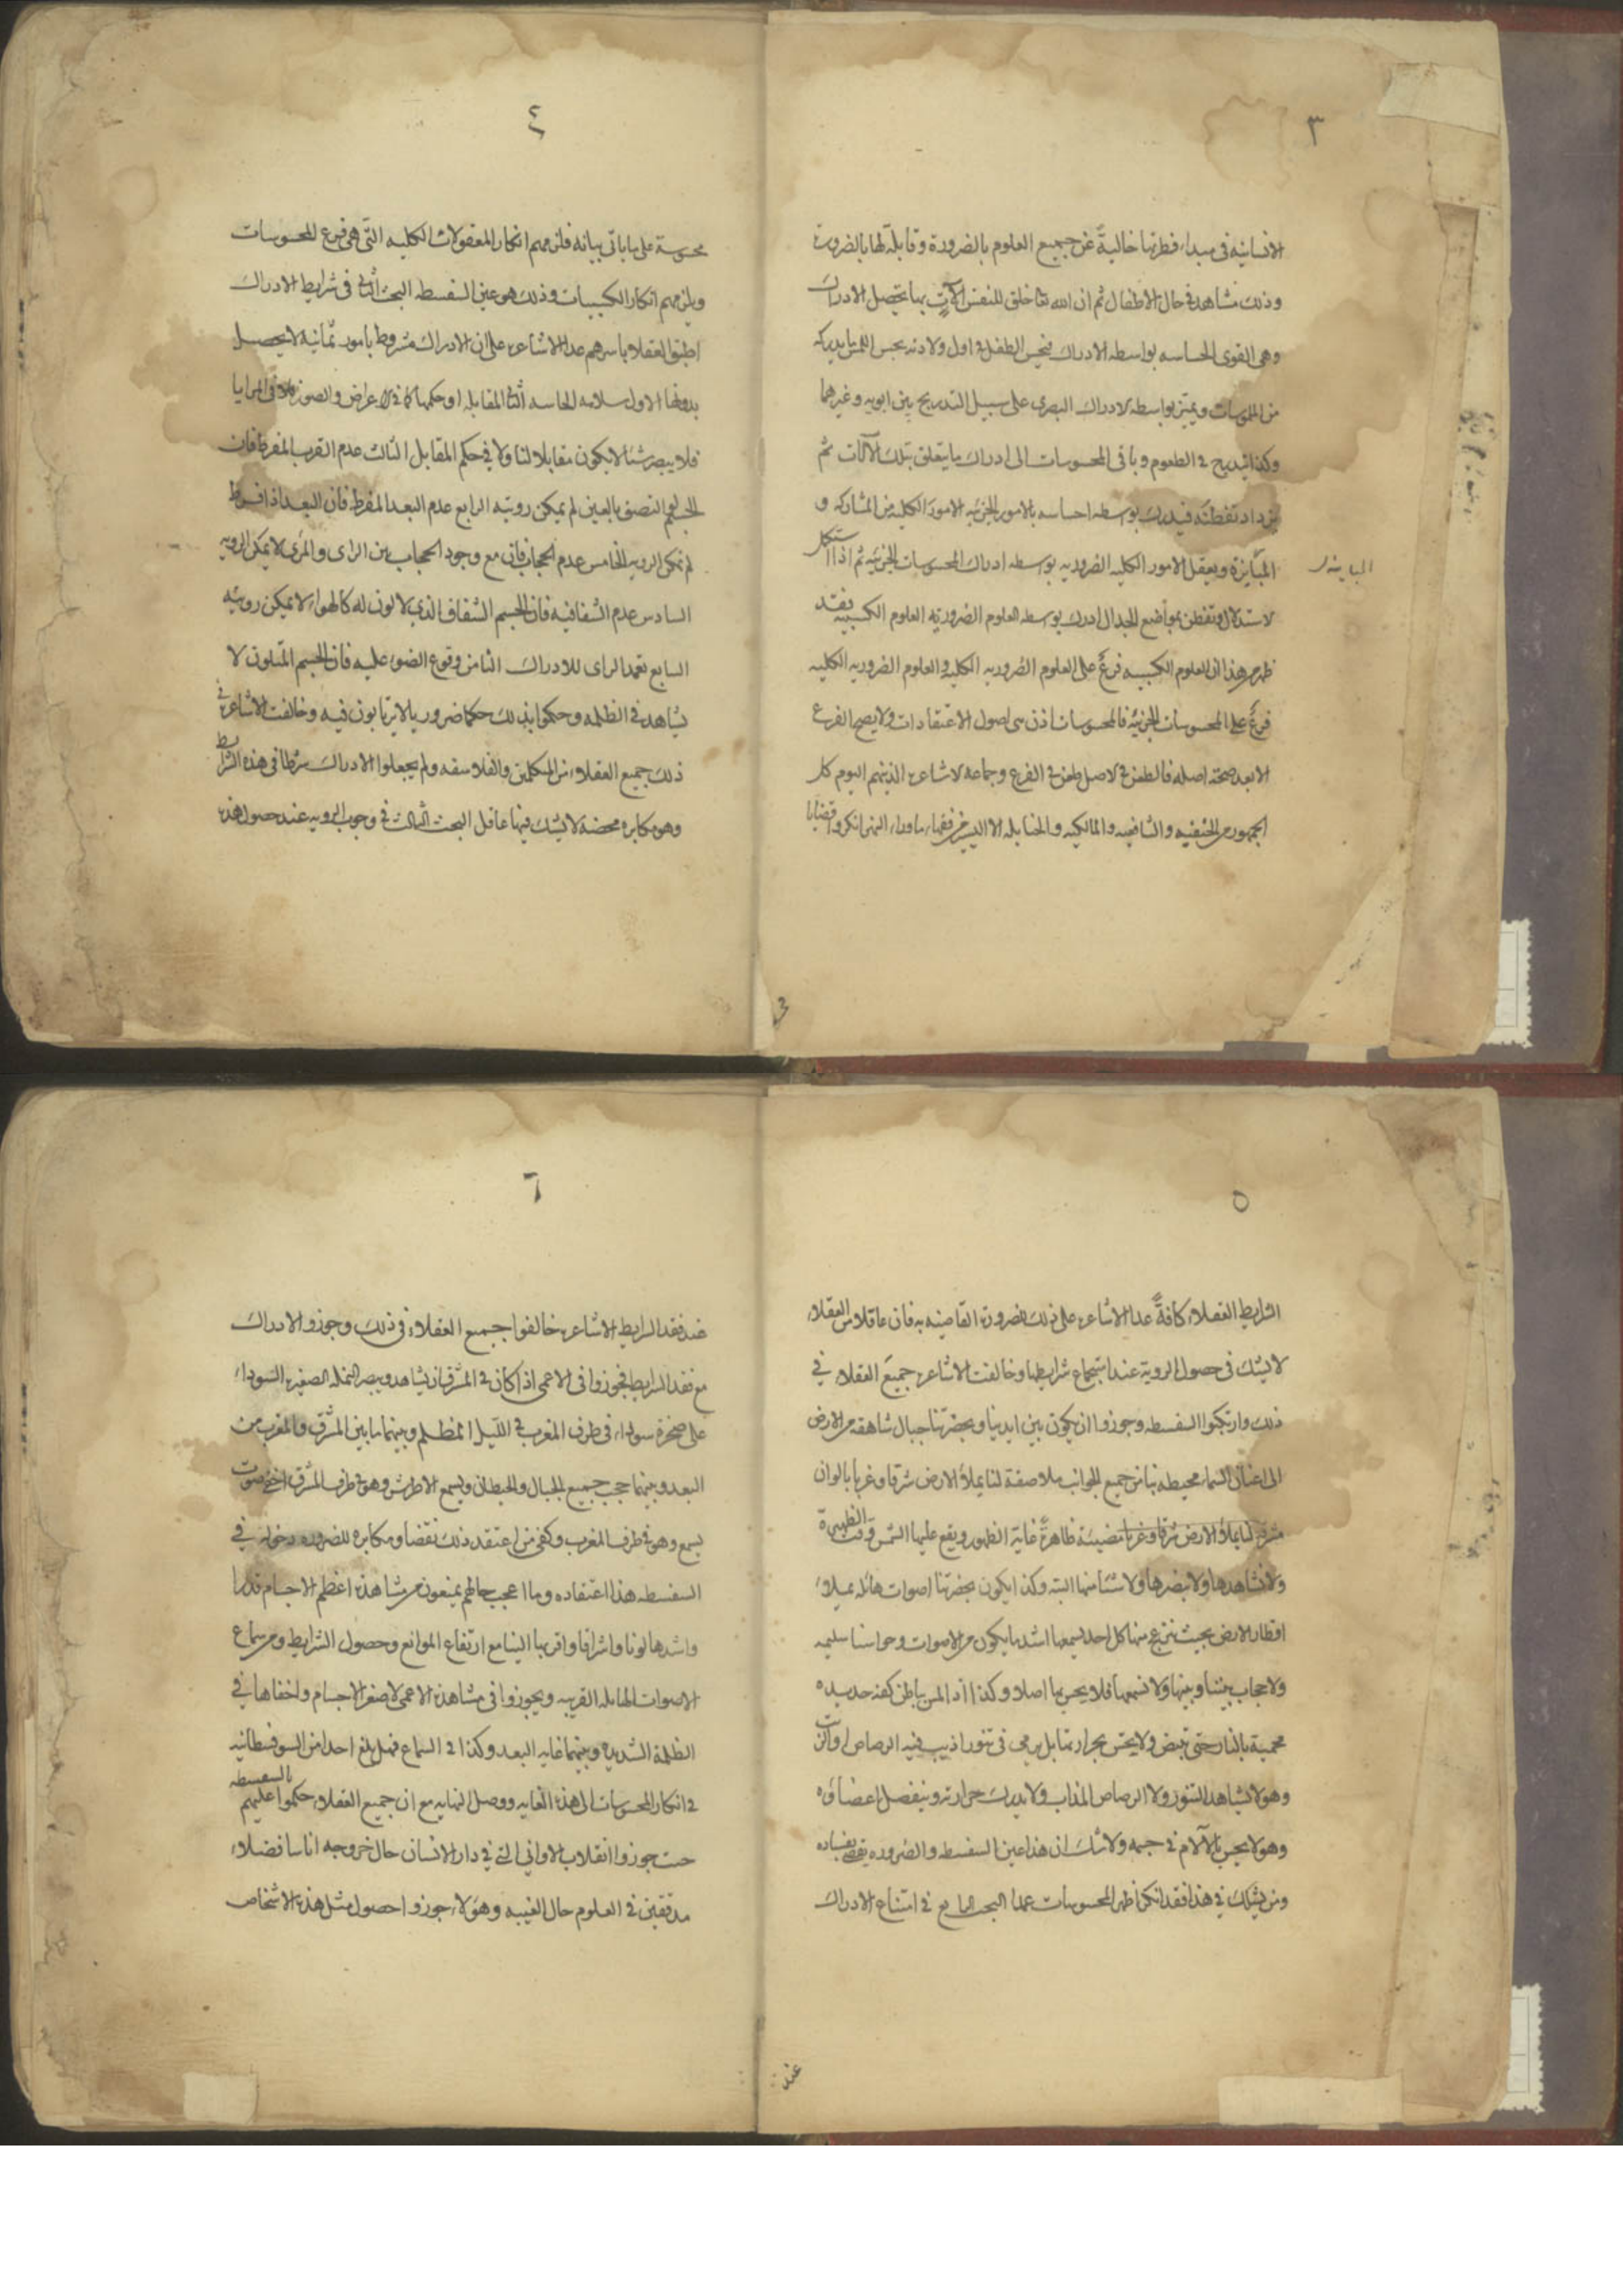 ٣
الانسانيه فى مبداء فطرتها خالية عن جميع العلوم بالضرورة وقابلة لها بالضرورة
وذلك مشاهد فى حال الاطفال ثم ان الله تعا خلق للنفس آلات بها يحصل الادراك
وهى القوى الحاسه بواسطه الادراك فيحس الطفل فى اول ولادته بحس اللمس ما يدركه
من الملموسات ويميز بواسطه الادراك البصرى على سبيل التدريج بين ابويه وغيرهما
وكذا يتدرج فى الطعوم وباقى المحسوسات الى ادراك ما يتعلق بتلك الآلات ثم
يزداد تفطنه فيدرك بواسطه احساسه بالامور الجزئيه الامور الكليه من المشاركه و
المباينة ويعقل الامور الكليه الضروريه بواسطه ادراك المحسوسات الجزئيه ثم اذا استكمل
المباينه
الاستدلال وتفطن بمواضع الجدال ادرك بواسطه العلوم الضروريه العلوم الكسبيه فقد
ظهر من هذا ان العلوم الكسبيه فرع على العلوم الضروريه الكليه والعلوم الضروريه الكليه
فرع على المحسوسات الجزئيه فالمحسوسات اذن هى اصول الاعتقادات ولا يصح الفرع
الا بعد صحة اصله فالطعن فى الاصل طعن فى الفرع وجماعة الاشاعره الذين هم اليوم كل
الجمهور من الحنفيه والشافعيه والمالكيه والحنابله الا اليسير من فقهاء ماوراء النهر انكروا قضايا
٤
محسوسة على ما ياتى بيانه فلزمهم انكار المعقولات الكليه التى هى فرع المحسوسات
ويلزمهم انكار الكسبيات وذلك هو عين السفسطه البحث الثانى فى شرايط الادراك
اطبق العقلا باسرهم عدا الاشاعره على ان الادراك مشروط بامور ثمانية لا يحصل
بدونها الاول سلامه الحاسه الثانى المقابله او حكمها كما فى الاعراض والصور فى المرايا
فلا يبصر شئا لا يكون مقابلا لنا ولا فى حكم المقابل الثالث عدم القرب المفرط فان
الجسم لو التصق بالعين لم يمكن رويته الرابع عدم البعد المفرط فان البعد اذا افرط
لم تمكن الرويه الخامس عدم الحجاب فان مع وجود الحجاب بين الراى والمرى لا يمكن الرويه
السادس عدم الشفافيه فان الجسم الشفاف الذى لا لون له كالهواء لا يمكن رويته
السابع تعمد الراى للادراك الثامن وقوع الضوء عليه فان الجسم المتلون لا
يشاهد فى الظلمه وحكموا بذلك حكما ضروريا لا يرتابون فيه وخالفت الاشاعره فى
ذلك جميع العقلاء من المتكلمين والفلاسفه ولم يجعلوا الادراك شرطا فى هذه الشرايط
وهو مكابرة محضة لا يشك فيها عاقل البحث الثالث فى وجوب الرويه عند حصول هذه
٥
الشرايط العقلاء كافة عدا الاشاعره على ذلك للضرورة القاضيه به فان عاقلا من العقلاء
لا يشك فى حصول الروية عند اجتماع شرايطها وخالفت الاشاعره جميع العقلاء فى
ذلك وارتكبوا السفسطه وجوزوا ان يكون بين ايدينا وبحضرتنا جبال شاهقه من الارض
الى اعنان السماء محيطه بنا من جميع الجوانب ملاصقة لنا يملأ الارض شرقا وغربا بالوان
مشرقة لنا يملأ الارض شرقا وغربا مضيئة ظاهرة غاية الظهور ويقع عليها الشمس وقت الظهيرة
ولا نشاهدها ولا نبصرها ولا شئا منها البته وكذا يكون بحضرتنا اصوات هائله يملاء
اقطار الارض بحيث ينزعج منها كل احد يسمعها اشد ما يكون من الاصوات وحواسنا سليمه
ولا حجاب بيننا وبينها ولا نسمعها فلا يحس بها اصلا وكذا اذا لمس بباطن كفه حديده
محمية بالنار حتى تبيض ولا يحس بحرارتها بل يرمى فى تنور اذيب فيه الرصاص او الزيت
وهو لا يشاهد التنور ولا الرصاص المذاب ولا يدرك حرارته وينفصل اعضاؤه
وهو لا يحس بالآلام فى جسمه ولا شك ان هذا عين السفسطه والضروره يقضى بفساده
ومن يشك فى هذا فقد انكر اظهر المحسوسات عندنا البحث الرابع فى امتناع الادراك
عند
٦
عند فقد الشرايط الاشاعره خالفوا جميع العقلاء فى ذلك وجوزوا الادراك
مع فقد الشرايط فجوزوا فى الاعمى اذا كان فى المشرق ان يشاهد ويبصر النملة الصغيره السوداء
على صخرة سوداء فى طرف المغرب فى الليل المظلم وبينهما ما بين المشرق والمغرب من
البعد وبينهما حجب جميع الجبال والحيطان ويسمع الاطرش وهو فى طرف المشرق اخفى صوت
يسمع وهو فى طرف المغرب وكفى من اعتقد ذلك نقصا ومكابرة للضروره دخوله فى
السفسطه هذا اعتقاده وما اعجب حالهم يمنعون من مشاهدة اعظم الاجسام قدرا
واشدها لونا واشراقا واقربها الينا مع ارتفاع الموانع وحصول الشرايط ومن سماع
الاصوات الهايله القريبه ويجوزوا فى مشاهدة الاعمى لاصغر الاجسام واخفاها فى
الظلمة الشديده وبينهما غايه البعد وكذا فى السماع فهل بلغ احد من السوفسطائيه
فى انكار المحسوسات الى هذه الغايه ووصل النهايه مع ان جميع العقلاء حكموا عليهم بالسفسطه
حيث جوزوا انقلاب الاوانى التى فى دار الانسان حال خروجه اناسا فضلاء
مدققين فى العلوم حال الغيبه وهؤلاء جوزوا حصول مثل هذه الاشخاص